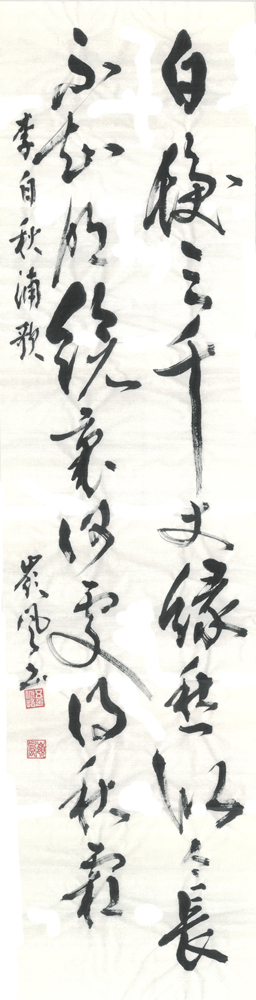 白髪三千丈縁愁似个長
不知明鏡裏何處得秋霜
李白秋浦歌
嶺風書